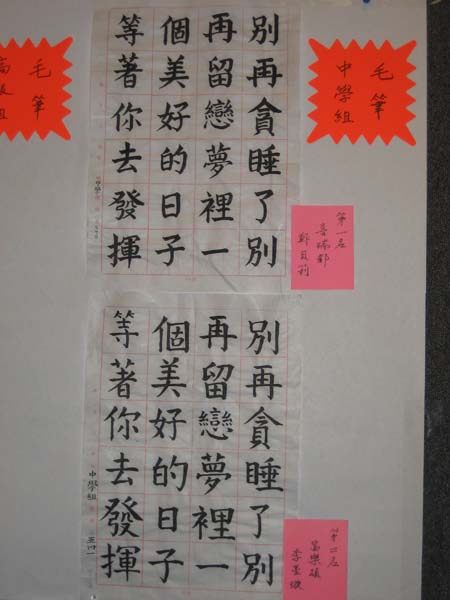 毛筆
中學組
別再貪睡了別
再留戀夢裡一
個美好的日子
等著你去發揮
第一名
毛筆
別再貪睡了別
再留戀夢裡一
個美好的日子
等著你去發揮
中學組
第二名